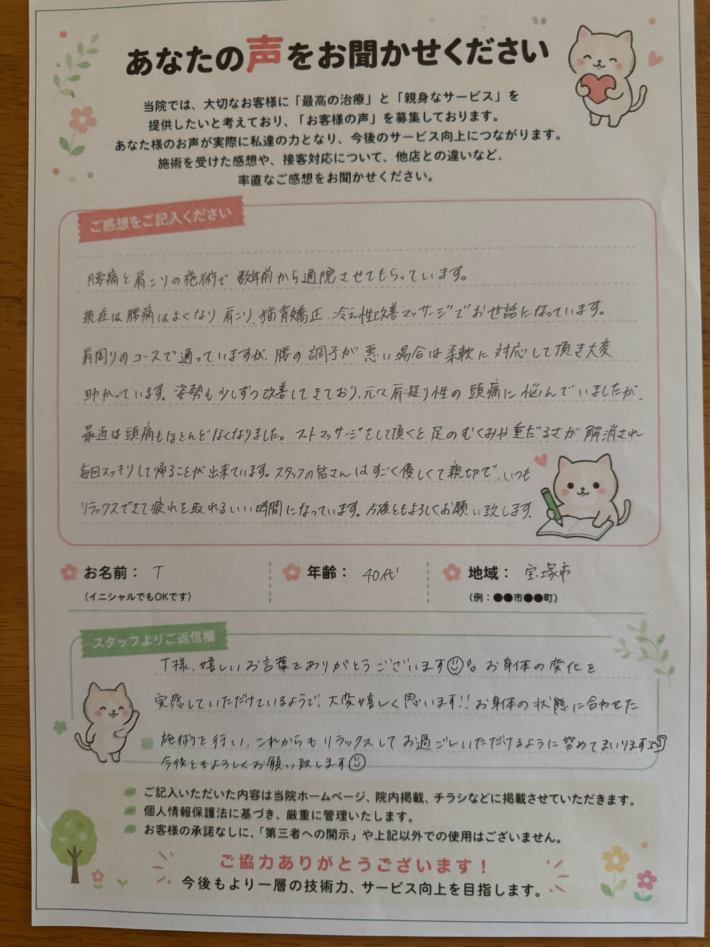 あなたの声をお聞かせください
当院では、大切なお客様に「最高の治療」と「親身なサービス」を
提供したいと考えており、「お客様の声」を募集しております。
あなた様のお声が実際に私達の力となり、今後のサービス向上につながります。
施術を受けた感想や、接客対応について、他店との違いなど、
率直なご感想をお聞かせください。
ご感想をご記入ください
腰痛と肩こりの施術で数年前から通院させてもらっています。
現在は腰痛はよくなり肩こり、猫背矯正、冷え性改善マッサージでお世話になっています。
肩周りのコースで通っていますが、腰の調子が悪い場合は柔軟に対応して頂き大変
助かっています。姿勢も少しずつ改善してきており、元々肩凝り性の頭痛に悩んでいましたが、
最近は頭痛もほとんどなくなりました。ストマッサージをして頂くと足のむくみや重だるさが解消され
毎回スッキリして帰ることが出来ています。スタッフの皆さんはすごく優しくて親切で、いつも
リラックスできて疲れを取れるいい時間になっています。今後ともよろしくお願い致します。
お名前： T
年齢： 40代
地域： 宝塚市
（イニシャルでもOKです）
（例：●●市●●町）
スタッフよりご返信欄
T様、嬉しいお言葉をありがとうございます お身体の変化を
実感していただけているようで、大変嬉しく思います!! お身体の状態に合わせた
施術を行い、これからもリラックスしてお過ごしいただけるように努めてまいります
今後ともよろしくお願い致します
ご記入いただいた内容は当院ホームページ、院内掲載、チラシなどに掲載させていただきます。
個人情報保護法に基づき、厳重に管理いたします。
お客様の承諾なしに、「第三者への開示」や上記以外での使用はございません。
ご協力ありがとうございます！
今後もより一層の技術力、サービス向上を目指します。